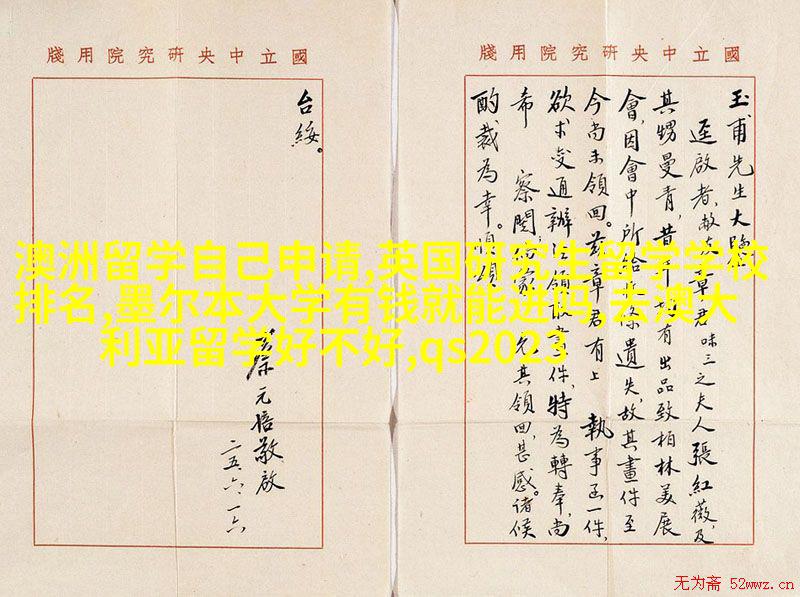 國立中央研究院用牋
玉甫先生大鑒
逕啟者,敝友章君味三之夫人張紅薇,及
其甥曼青,昔年均有出品致柏林美展
會,因會中所給收條遺失,故其畫件至
今尚未領回。茲章君有上 執事函一件,
欲求變通辦法領取畫件,特為轉奉,尚
希 察閱,如蒙 允其領回,甚感。諸候
酌裁為幸。順頌
國立中央研究院用牋
台綏。
蔡元培敬啟
二五、六、一六
澳洲留学自己申请,英国研究生留学学校
排名,墨尔本大学有钱就能进吗,去澳大
利亚留学好不好,qs2023
无为斋 52wwz.cn